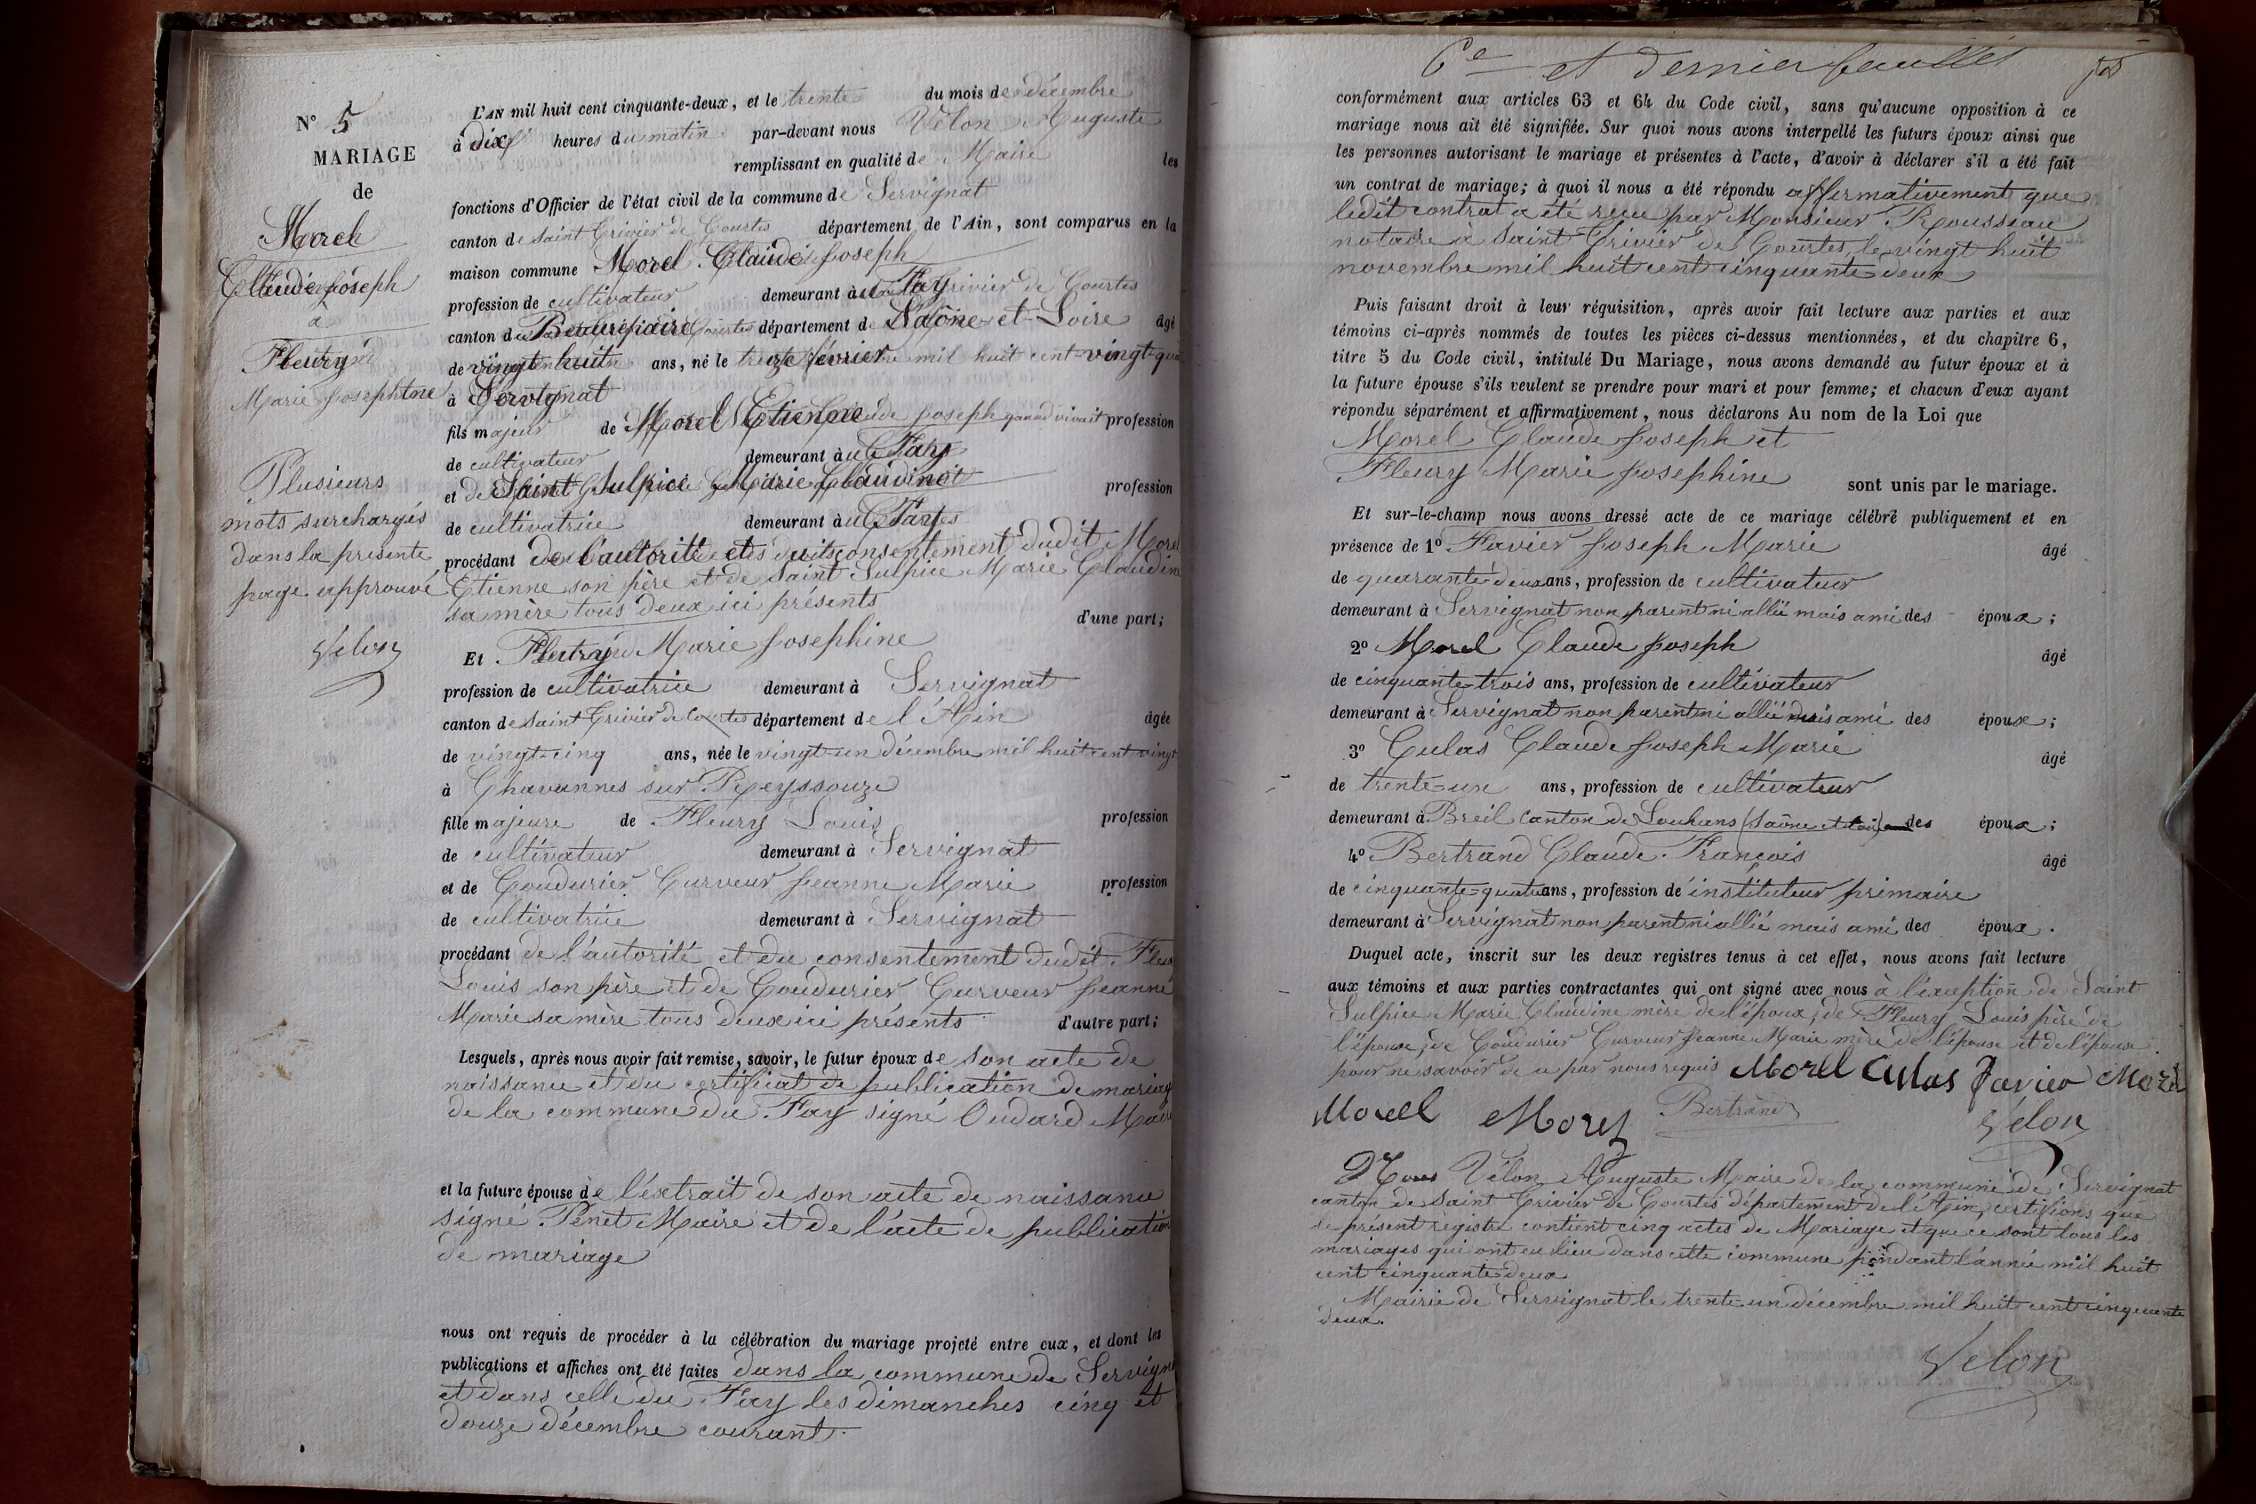 N° 5
MARIAGE
de
Morel
Claude Joseph
à
Fleury
Marie Josephine
Plusieurs
mots surchargés
dans la présente
page approuvé
Vélon
L'AN mil huit cent cinquante-deux, et le trente du mois de décembre
à dix heures du matin par-devant nous Vélon Auguste
remplissant en qualité de Maire les
fonctions d'Officier de l'état civil de la commune de Servignat
canton de Saint Trivier de Courtes département de l'Ain, sont comparus en la
maison commune Morel Claude Joseph
profession de cultivateur demeurant à Fay
canton de Beaurepaire département de Saône et Loire âgé
de vingt huit ans, né le février mil huit cent vingt
à Servignat
fils majeur de Morel Etienne profession
de cultivateur demeurant à Fay
et de Saint Sulpice Marie Claudine profession
de cultivatrice demeurant à Fay
procédant de l'autorité et du consentement dudit Morel
Etienne son père et de Saint Sulpice Marie Claudine
sa mère tous deux ici présents
d'une part;
Et Fleury Marie Josephine
profession de cultivatrice demeurant à Servignat
canton de Saint Trivier de Courtes département de l'Ain âgée
de vingt-cinq ans, née le vingt-un décembre mil huit cent vingt
à Chavannes sur Reyssouze
fille majeure de Fleury Louis profession
de cultivateur demeurant à Servignat
et de Coudurier Curveur Jeanne Marie profession
de cultivatrice demeurant à Servignat
procédant de l'autorité et du consentement dudit Fleu
Louis son père et de Coudurier Curveur Jeanne
Marie sa mère tous deux ici présents d'autre part;
Lesquels, après nous avoir fait remise, savoir, le futur époux de son acte de
naissance et du certificat de publication de mariage
de la commune du Fay signé Oudard Maire
et la future épouse de l'extrait de son acte de naissance
signé Penet Maire et de l'acte de publication
de mariage
nous ont requis de procéder à la célébration du mariage projeté entre eux, et dont les
publications et affiches ont été faites dans la commune de Servigna
et dans celle du Fay les dimanches cinq et
douze décembre courant.
6e et dernier feuillet
conformément aux articles 63 et 64 du Code civil, sans qu'aucune opposition à ce
mariage nous ait été signifiée. Sur quoi nous avons interpellé les futurs époux ainsi que
les personnes autorisant le mariage et présentes à l'acte, d'avoir à déclarer s'il a été fait
un contrat de mariage; à quoi il nous a été répondu affirmativement que
ledit contrat a été reçu par Monsieur Rousseau
notaire à Saint Trivier de Courtes le vingt huit
novembre mil huit cent cinquante deux
Puis faisant droit à leur réquisition, après avoir fait lecture aux parties et aux
témoins ci-après nommés de toutes les pièces ci-dessus mentionnées, et du chapitre 6,
titre 5 du Code civil, intitulé Du Mariage, nous avons demandé au futur époux et à
la future épouse s'ils veulent se prendre pour mari et pour femme; et chacun d'eux ayant
répondu séparément et affirmativement, nous déclarons Au nom de la Loi que
Morel Claude Joseph et
Fleury Marie Josephine
sont unis par le mariage.
Et sur-le-champ nous avons dressé acte de ce mariage célébré publiquement et en
présence de 1° Favier Joseph Marie âgé
de quarante deux ans, profession de cultivateur
demeurant à Servignat non parent ni allié mais ami des époux;
2° Morel Claude Joseph âgé
de cinquante-trois ans, profession de cultivateur
demeurant à Servignat non parent ni allié mais ami des époux;
3° Culas Claude Joseph Marie âgé
de trente-un ans, profession de cultivateur
demeurant à Breil canton de Louhans (Saône et Loire) des époux;
4° Bertrand Claude François âgé
de cinquante-quatre ans, profession de instituteur primaire
demeurant à Servignat non parent ni allié mais ami des époux.
Duquel acte, inscrit sur les deux registres tenus à cet effet, nous avons fait lecture
aux témoins et aux parties contractantes qui ont signé avec nous à l'exception de Saint
Sulpice Marie Claudine mère de l'époux, de Fleury Louis père de
l'épouse, de Coudurier Curveur Jeanne Marie mère de l'épouse et de l'épouse
pour ne savoir de ce par nous requis Morel Culas Favier Morel
Morel Morel Bertrand Vélon
Nous Vélon Auguste Maire de la commune de Servignat
canton de Saint Trivier de Courtes département de l'Ain, certifions que
le présent registre contient cinq actes de Mariage et que ce sont tous les
mariages qui ont eu lieu dans cette commune pendant l'année mil huit
cent cinquante deux
Mairie de Servignat le trente un décembre mil huit cent cinquante
deux.
Velon